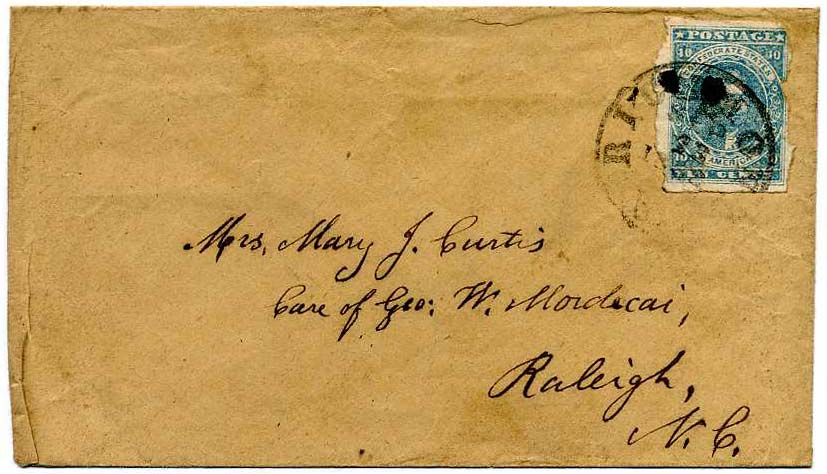 ★ POSTAGE ★
10 10
CONFEDERATE STATES
AMERICA
TEN CENTS
Mrs. Mary J. Curtis
Care of Geo: W. Mordecai,
Raleigh,
N. C.